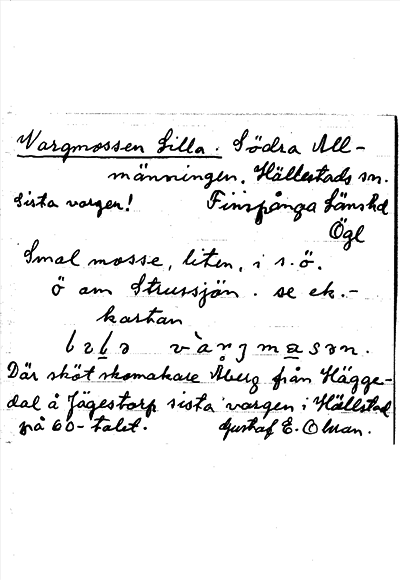 Vargmossen Lilla. Södra All-
männingen. Hällestads sn.
Sista vargen! Finspånga länshd
Ögl
Smal mosse, liten, i s.ö.
ö om Strussjön. se ek.-
kartan
Där sköt skomakare Åberg från Hägge-
dal å Jägestorp sista vargen i Hällstad
på 60-talet. Gustaf E. Olsson.